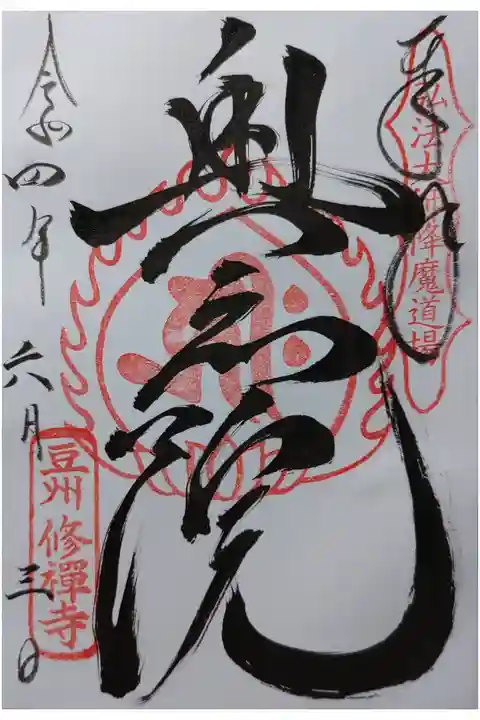 奉拝
弘法大師降魔道場
奥之院
令和四年六月三日
豆州修禅寺